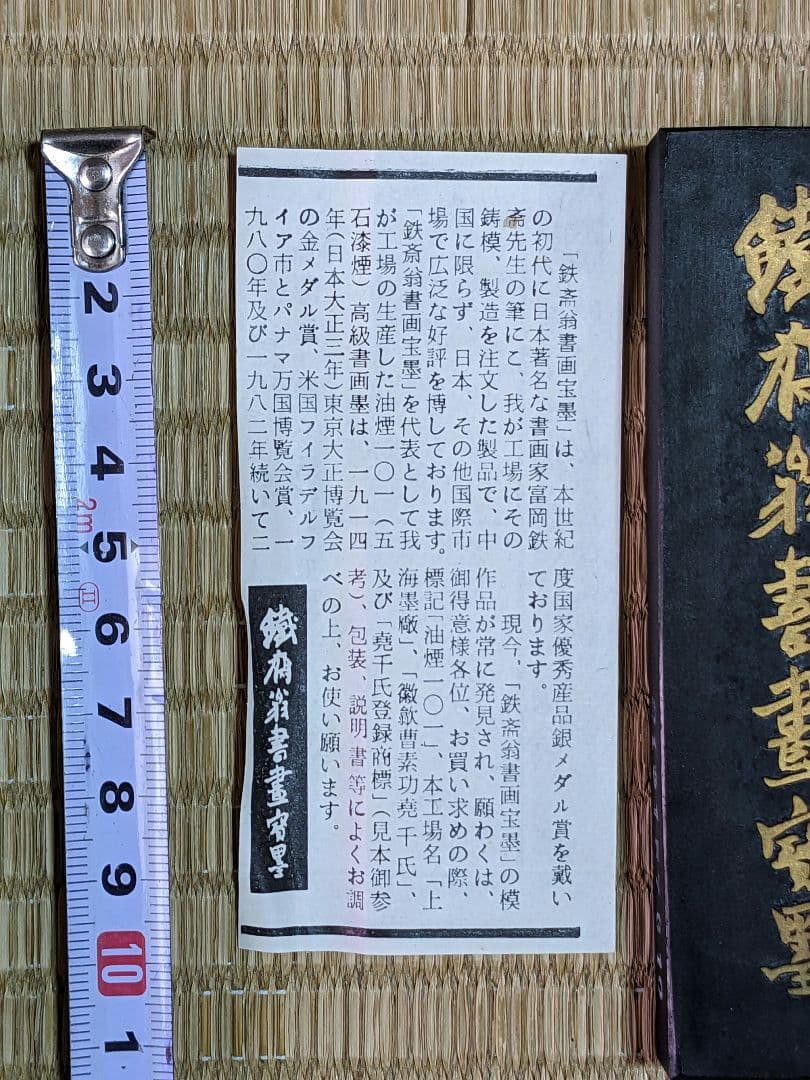 「鉄斎翁書画宝墨」は、本世紀
の初代に日本著名な書画家富岡鉄
斎先生の筆にこ、我が工場にその
鋳模、製造を注文した製品で、中
国に限らず、日本、その他国際市
場で広泛な好評を博しております。
「鉄斎翁書画宝墨」を代表として我
が工場の生産した油煙一〇一(五
石漆煙)高級書画墨は、一九一四
年(日本大正三年)東京大正博覧会
の金メダル賞、米国フイラデルフ
イア市とパナマ万国博覧会賞、一
九八〇年及び一九八二年続いて二
度国家優秀産品銀メダル賞を戴い
ております。
現今、「鉄斎翁書画宝墨」の模
作品が常に発見され、願わくは、
御得意様各位、お買い求めの際、
標記「油煙一〇一」、本工場名「上
海墨廠」、「徽歙曹素功堯千氏」、
及び「堯千氏登録商標」(見本御参
考)、包装、説明書等によくお調
べの上、お使い願います。
鐵齋翁書畫寶墨
鐵齋翁書畫寶墨
2
3
4
2m
5
6
7
8
9
10
1